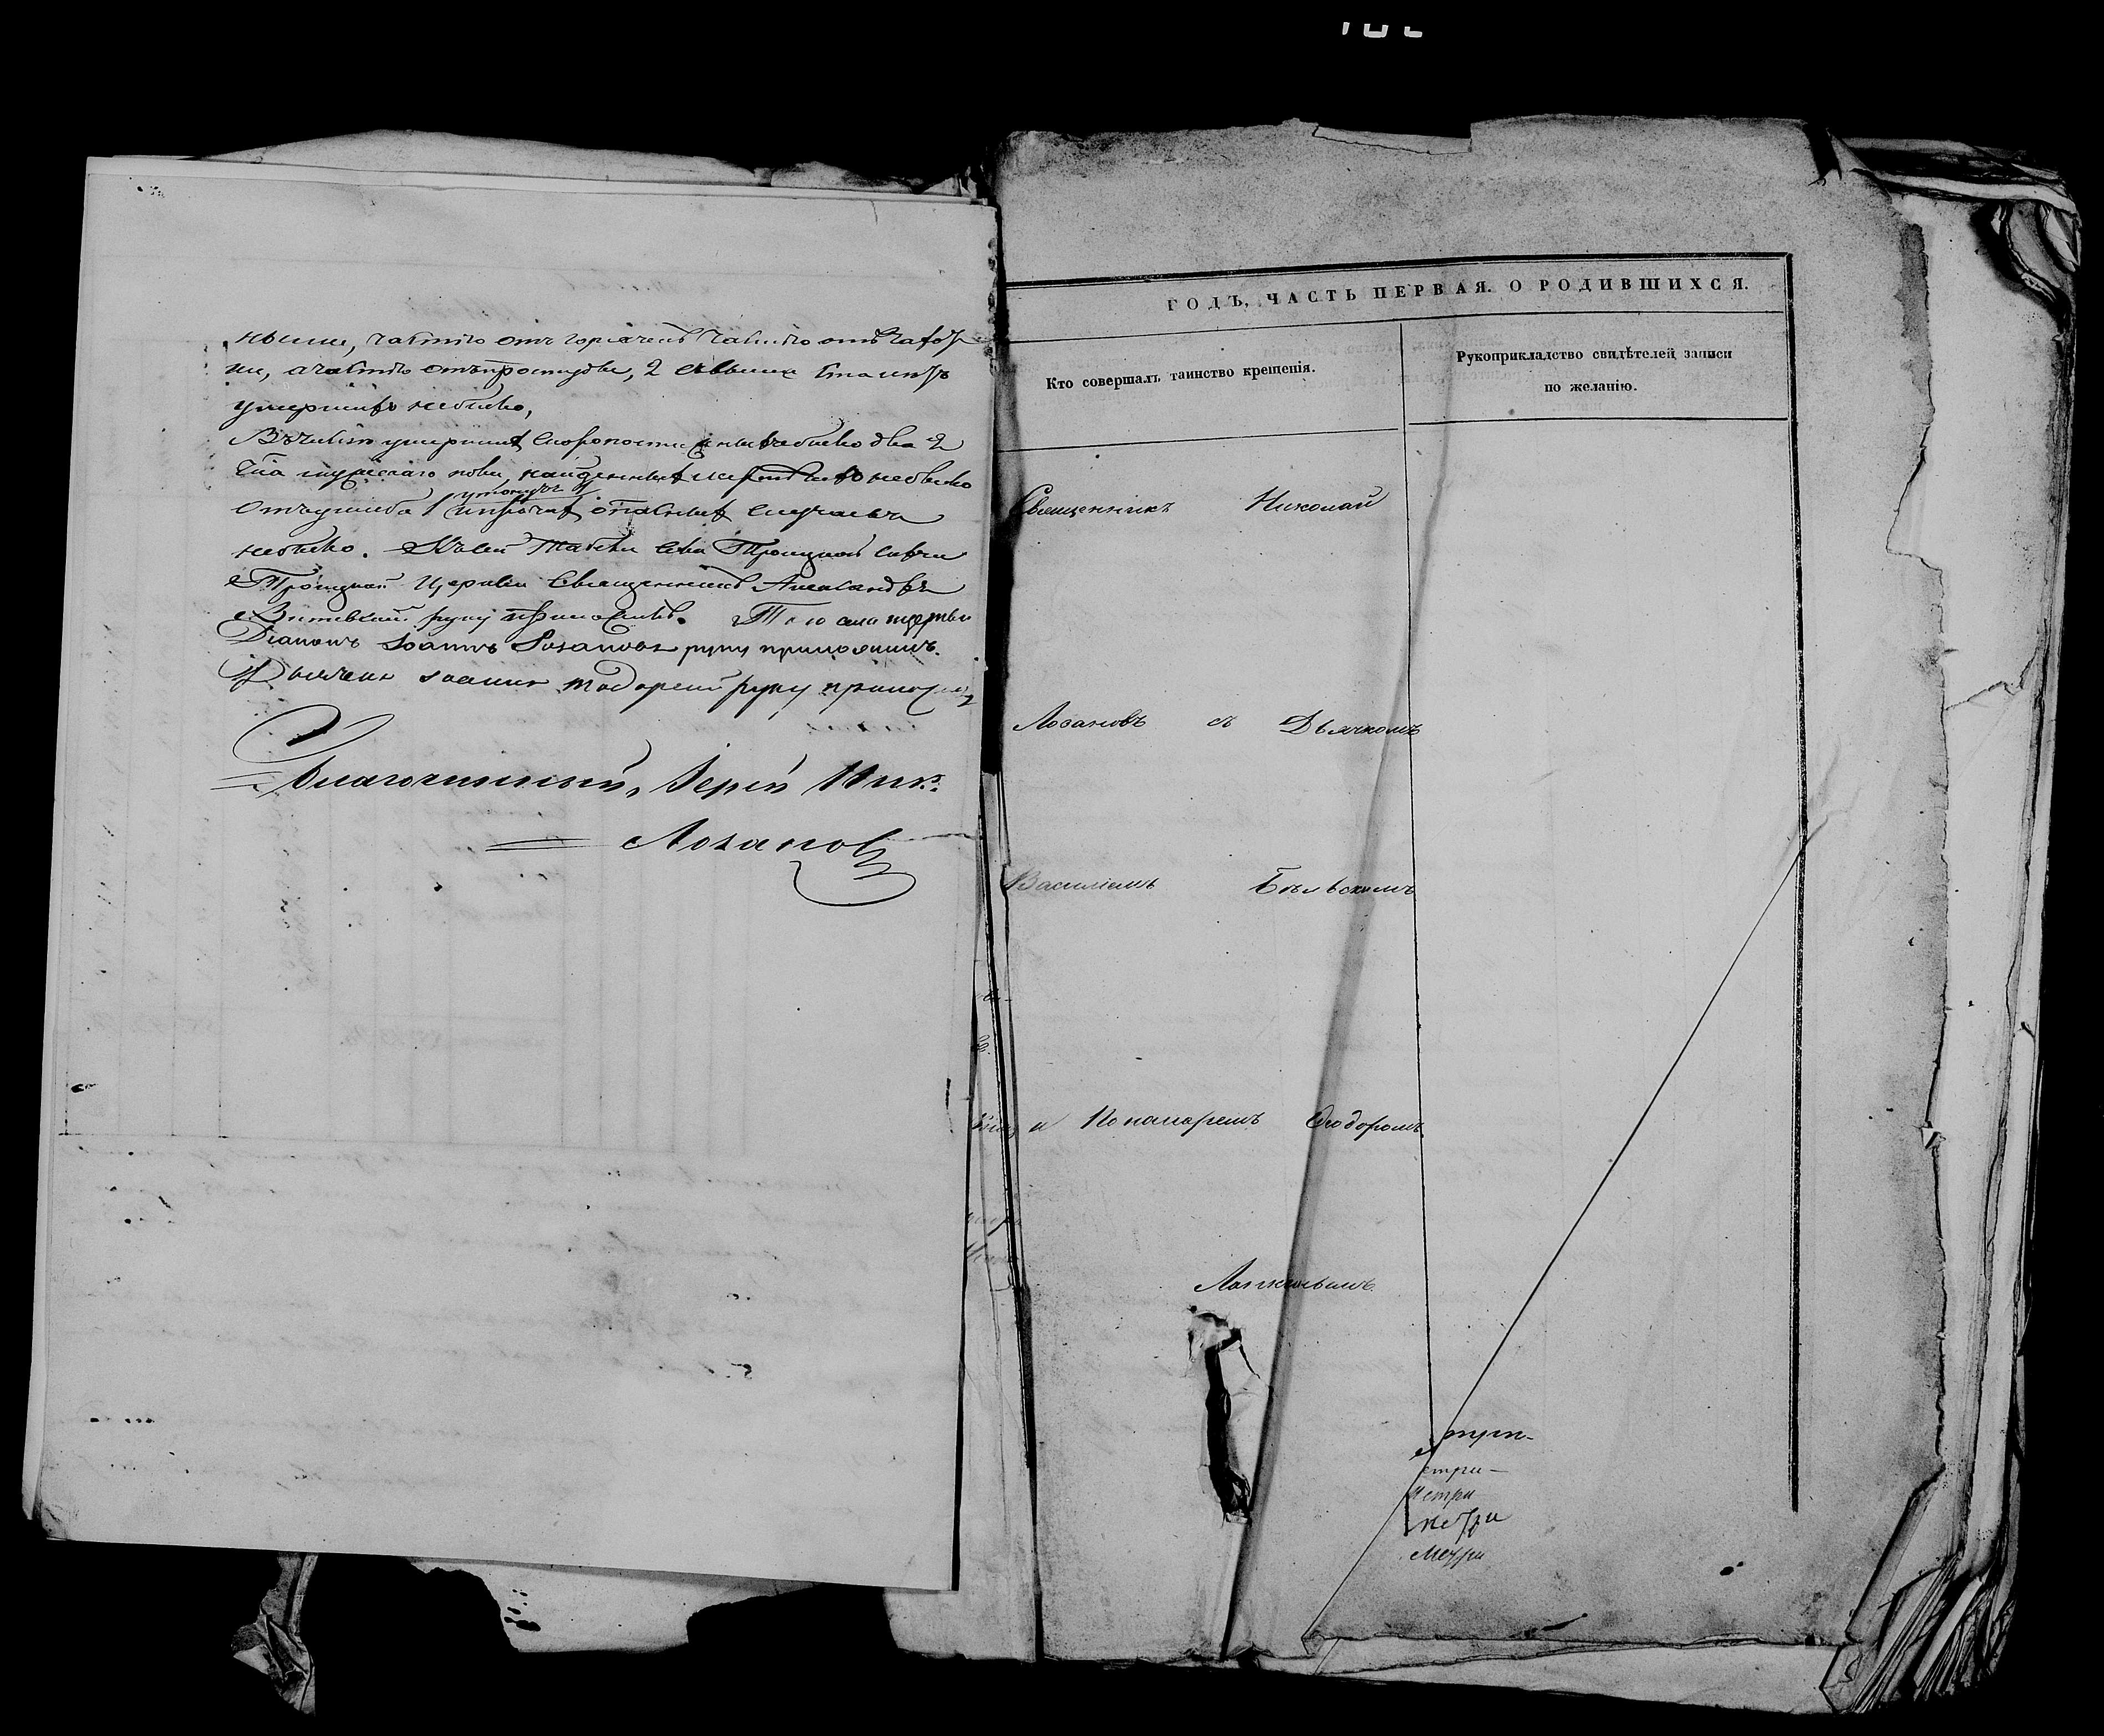 ными, частію отъ горячекъ частію отъ чахот
ки, а частію отъ простуды, 2 свыше ста лѣтъ
умершихъ небыло,
Въ числѣ умершихъ скоропостижныхъ было два 2
ста мужескаго пола, найденныхъ мертвыхъ небыло
утонулъ 1
отъ ушиба 1 и прочихъ опасныхъ случаевъ
небыло. Къ сей Табели села Троицкой
Троицкой Церкви Священникъ Александръ
руку приложилъ. Того села церкви
Діаконъ Іоаннъ Лозановъ руку приложилъ.
Дьячекъ Іоаннъ руку приложилъ
Благочинный, Іерей Ник:
Лозановъ
ГОДЪ, ЧАСТЬ ПЕРВАЯ. О РОДИВШИХСЯ.
Кто совершалъ таинство крещенія.
Рукоприкладство свидѣтелей записи
по желанію.
Священникъ Николай
Лозановъ съ Дьячкомъ
Василіемъ Бѣльскимъ
и Пономаремъ Ѳеодоромъ
стри
метри
метри